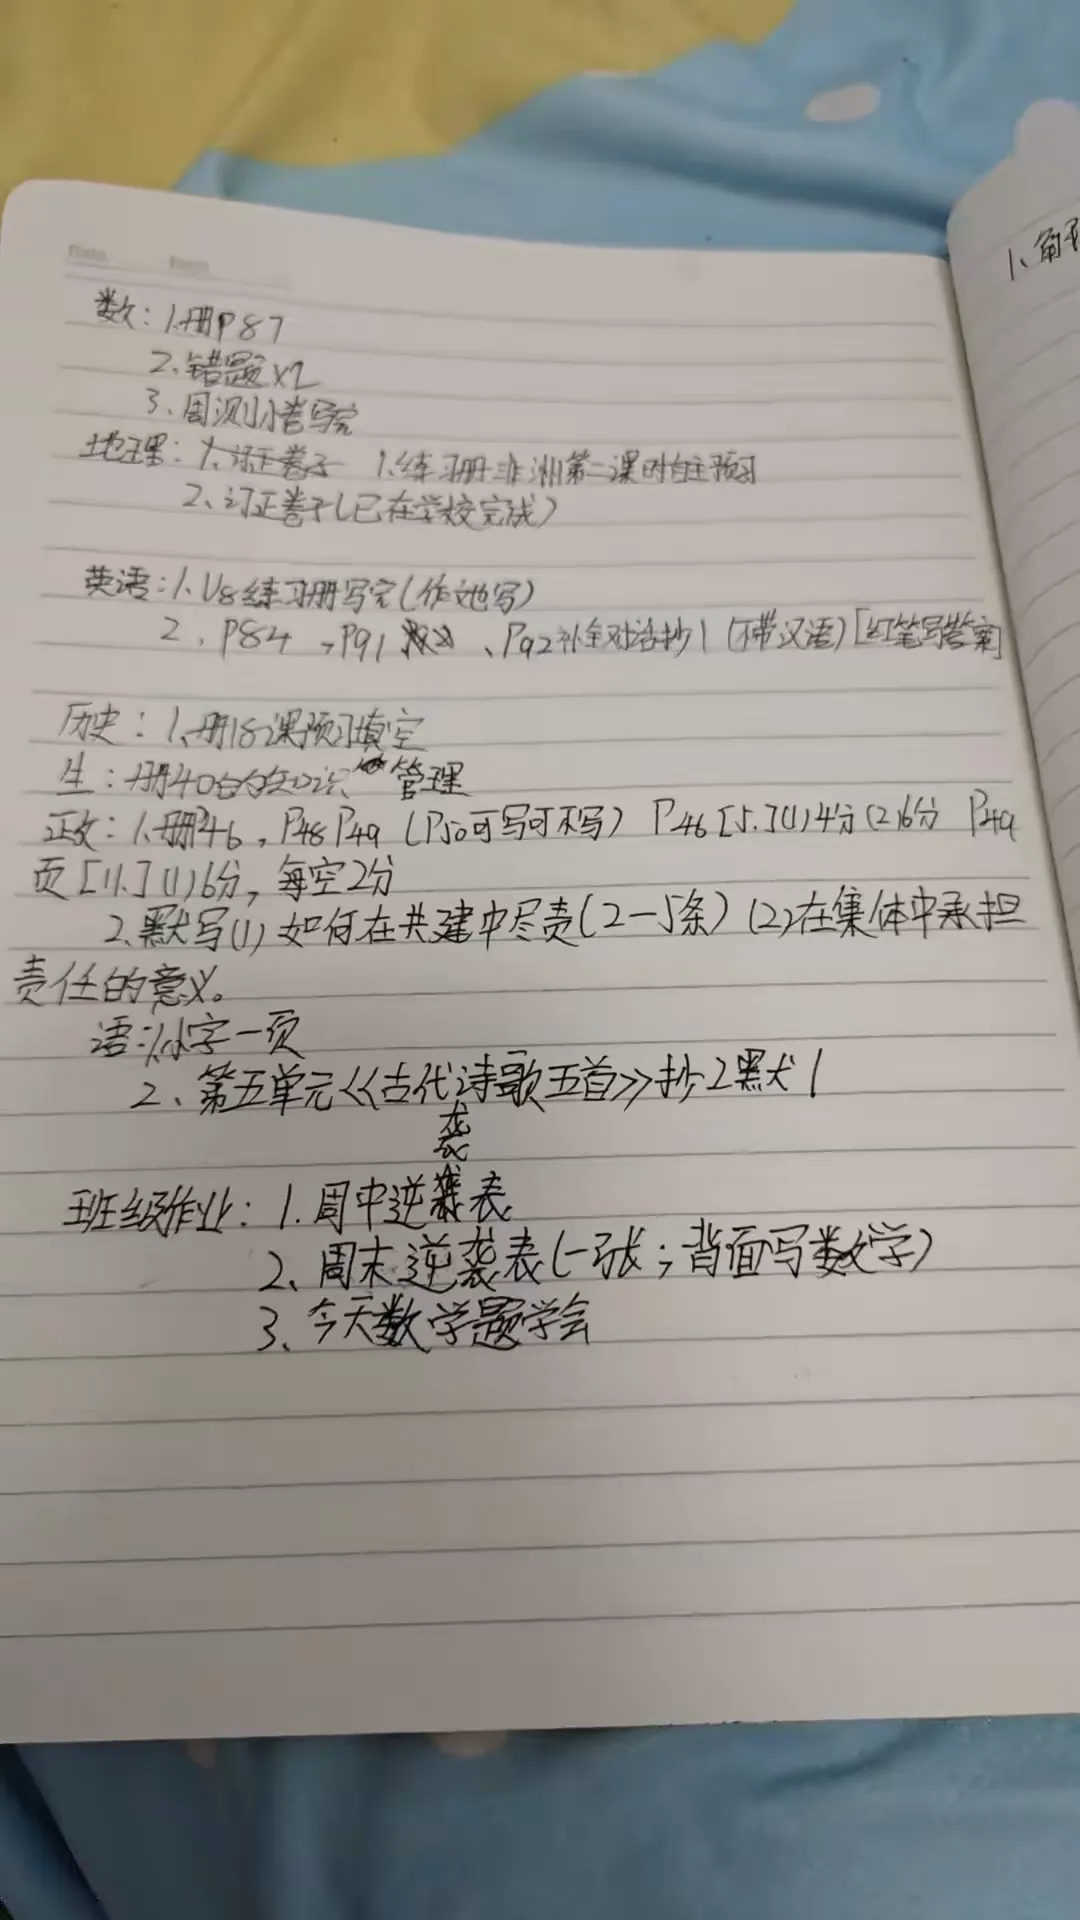 数：1.册P87
2.错题x2
3、周测小卷写完
地理：1.订正卷子 1.练习册非洲第二课时自主预习
2、订正卷子(已在学校完成)
英语：1、U8练习册写完(作文也写)
2、P84，P91、P92补全对话抄1(不带汉语)[红笔写答案]
历史：1.册18课预习填空
生：册40白的知识管理
政：1.册P46，P48 P49(P50可写可不写) P46[5.](1)4分(2)6分 P49
页[11.](1)6分，每空2分
2.默写(1)如何在共建中尽责(2-5条)(2)在集体中承担
责任的意义。
语：1.小字一页
2、第五单元《古代诗歌五首》抄2默1
袭
班级作业：1.周中逆袭表
2、周末逆袭表(一张；背面写数学)
3、今天数学题学会
1、角平